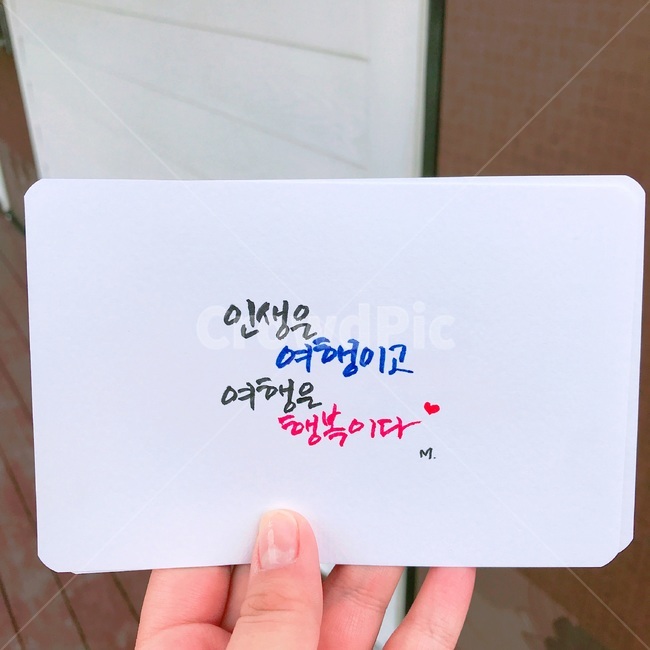 인생은
여행이고
여행은
행복이다
M.
CrowdPic